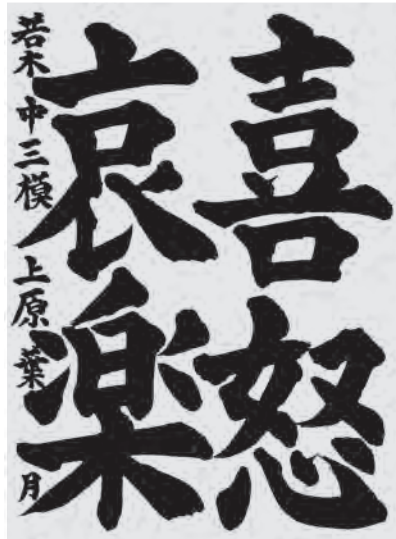 喜怒
哀楽
若木 中三模 上原 葉月